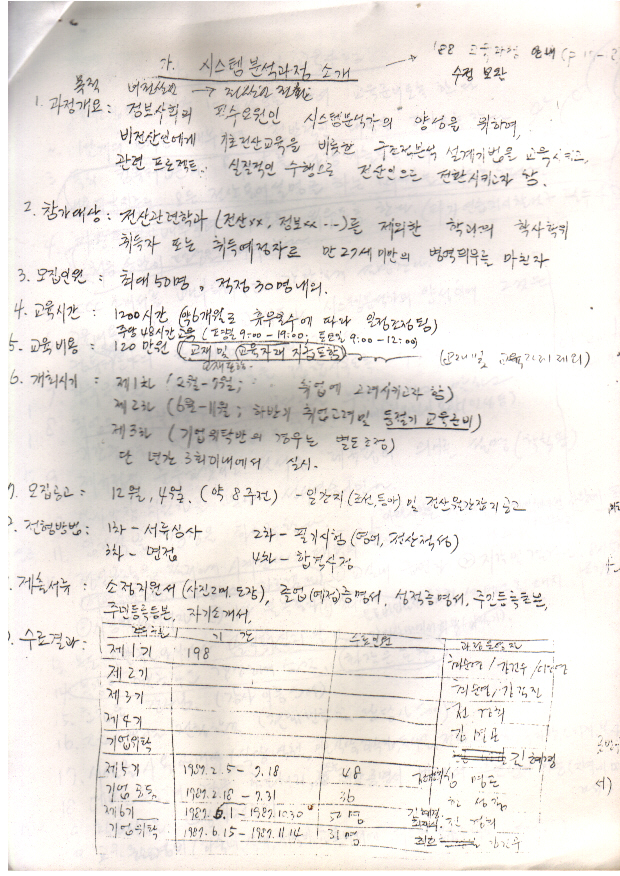 가. 시스템분석과정 소개 → '88 교육과정 안내
수정 보완
목적 비전산인 → 전산인 전환
1. 과정개요 : 정보사회의 필수요원인 시스템분석가의 양성을 위하여,
비전산인에게 기초전산교육을 비롯한 구조적분석 설계기법을 교육시키고,
관련 프로젝트 실질적인 수행으로 전산인으로 전환시키고자 함.
2. 참가대상 : 전산관련학과 (전산xx, 정보xx ...)를 제외한 학과의 학사학위
취득자 또는 취득예정자로 만 27세미만의 병역의무를 마친자
3. 모집인원 : 최대 50명, 적정 30명 내외.
4. 교육시간 : 1200시간 (약6개월로 휴무일수에 따라 일정조정됨)
주당 48시간 교육 (평일 9:00-19:00; 토요일 9:00-12:00)
5. 교육비용 : 120만원 (교재 및 교육자재 지급포함)
6. 개최시기 : 제1회 (2월-7월; 취업에 고려시키고자 함)
제2회 (6월-11월; 하반기 취업고려 및 동절기 교육준비)
제3회 (기업위탁반의 경우는 별도조정)
단 년간 3회이내에서 실시.
모집공고 : 12월, 4월. (약 8주전) - 일간지 (조선, 동아) 및 전산월간잡지 공고
전형방법 : 1차 - 서류심사 2차 - 필기시험 (영어, 전산적성)
3차 - 면접 4차 - 합격사정
제출서류 : 소정지원서 (사진2매, 도장), 졸업(예정)증명서, 성적증명서, 주민등록초본,
주민등록등본, 자기소개서,
수료결과 : 기간 수료인원
제1기 198
제2기
제3기
제4기
기업위탁 김혜경
제5기 1987.2.5 - 7.18 48
기업 1987.2.18 - 7.31 36
제6기 1987.6.1 - 1987.10.30 50명
기업위탁 1987.6.15 - 1987.11.14 31명